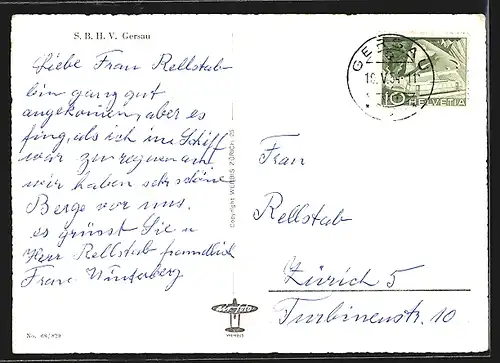 S. B. H. V. Gersau
Liebe Frau Rellstab
bin ganz gut
angekommen, aber es
fing, als ich im Schiff
war zu regnen an
wir haben sehr schöne
Berge vor uns.
es grüsst Sie u
Herr Rellstab freundlich
Frau Winterberg
No. 68/829
Copyright WEHRLI ZÜRICH 25
GERSAU
18.V.54-11
10 HELVETIA
Frau
Rellstab
Zürich 5
Turbinenstr. 10